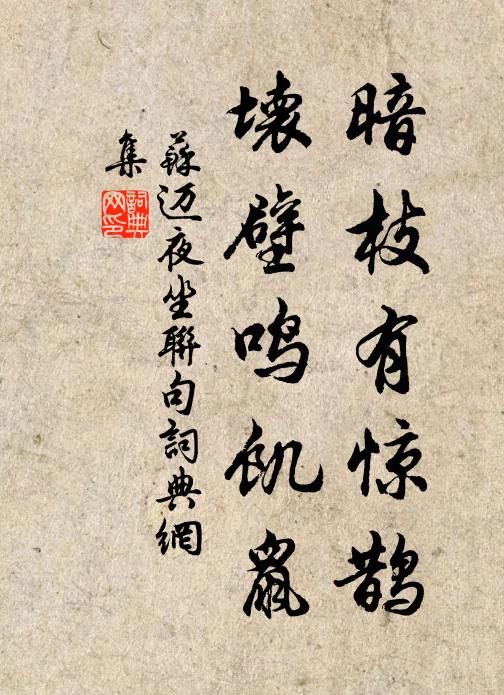 暗枝有惊鹊
坏壁鸣饥鼠
蘇迈夜坐聯句詞典網
集
詞典网印